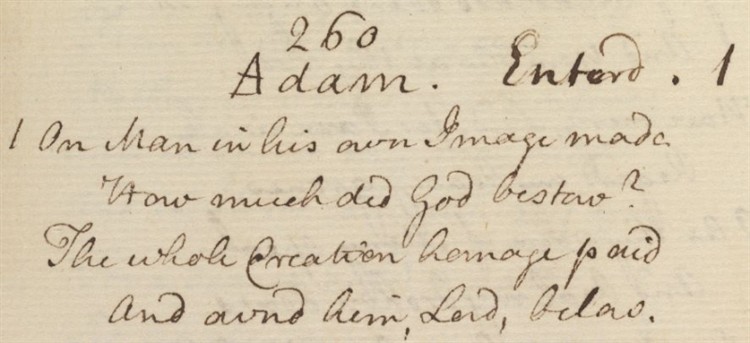 260
Adam. Enterd. 1
1 On Man in his own Image made
How much did God bestow?
The whole Creation homage paid
And ownd him, Lord, below.